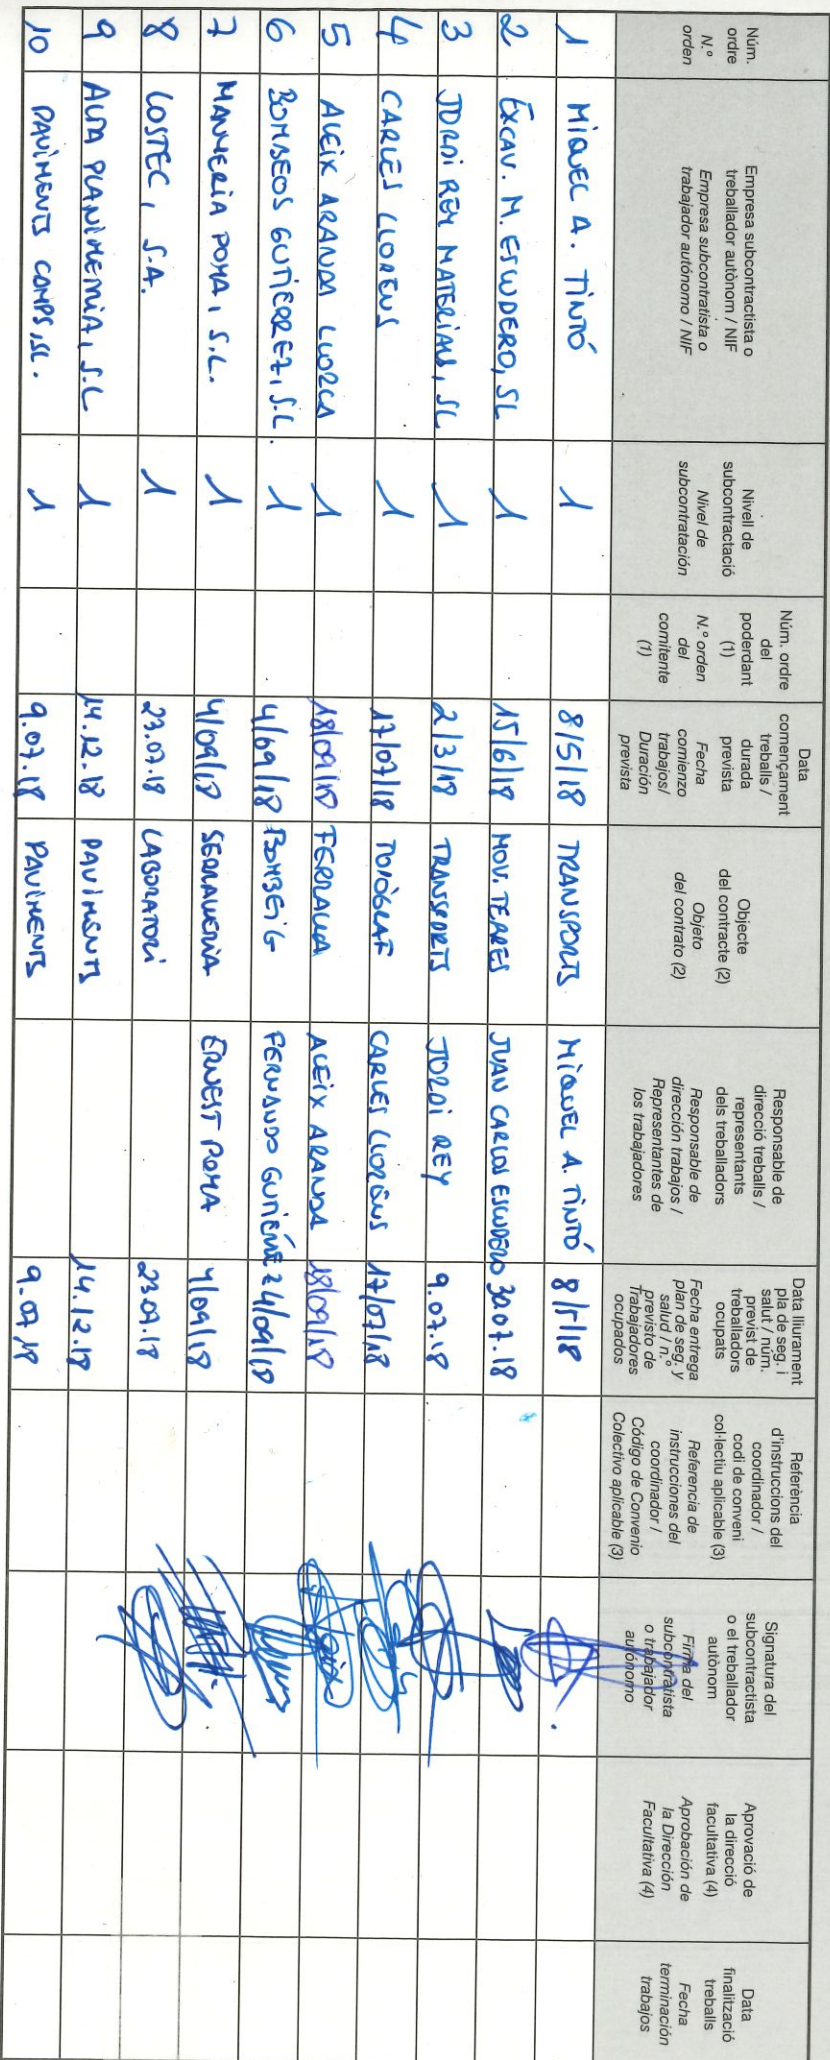 Núm.
ordre
N.º
orden
Empresa subcontractista o
treballador autònom / NIF
Empresa subcontratista o
trabajador autónomo / NIF
Nivell de
subcontractació
Nivel de
subcontratación
Núm. ordre
del
poderdant
(1)
N.º orden
del
comitente
(1)
Data
començament
treballs /
durada
prevista
Fecha
comienzo
trabajos/
Duración
prevista
Objecte
del contracte (2)
Objeto
del contrato (2)
Responsable de
direcció treballs /
representants
dels treballadors
Responsable de
dirección trabajos /
Representantes de
los trabajadores
Data lliurament
pla de seg. i
salut / núm.
previst de
treballadors
ocupats
Fecha entrega
plan de seg. y
salud / n.º
previsto de
Trabajadores
ocupados
Referència
d'instruccions del
coordinador /
codi de conveni
col·lectiu aplicable (3)
Referencia de
instrucciones del
coordinador /
Código de Convenio
Colectivo aplicable (3)
Signatura del
subcontractista
o el treballador
autònom
Firma del
subcontratista
o trabajador
autónomo
Aprovació de
la direcció
facultativa (4)
Aprobación de
la Dirección
Facultativa (4)
Data
finalització
treballs
Fecha
terminación
trabajos
1 MIQUEL A. TINTÓ 1 8/5/18 TRANSPORTS MIQUEL A. TINTÓ 8/5/18
2 EXCAV. M. ESCUDERO, SL 1 15/6/18 MOV. TERRES JUAN CARLOS ESCUDERO 30.07.18
3 JORDI REY MATERIALS, SL 1 2/3/18 TRANSPORTS JORDI REY 9.07.18
4 CARLES LLORENS 1 17/07/18 TOPÒGRAF CARLES LLORENS 17/07/18
5 ALEIX ARANDA LLORCA 1 18/09/18 FERRALLA ALEIX ARANDA 18/09/18
6 BOMBEOS GUTIERREZ, S.L. 1 4/09/18 BOMBEIG FERNANDO GUTIÉRREZ 4/09/18
7 MANYERIA POMA, S.L. 1 4/09/18 SERRALLERIA ERNEST POMA 4/09/18
8 LOSTEC, S.A. 1 23.07.18 LABORATORI 23.07.18
9 ALTA PLANIMETRIA, S.L 1 14.12.18 PAVIMENTS 14.12.18
10 PAVIMENTS COMPS, SL. 1 9.07.18 PAVIMENTS 9.07.18